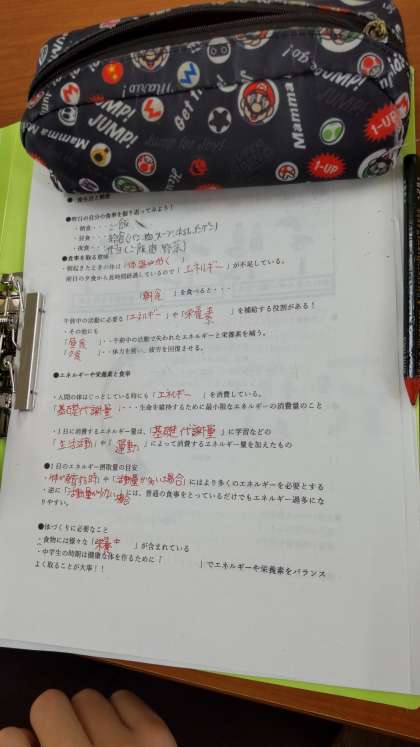 Mario!
Get it!
JUMP!
JUMP!
Mamma
1-UP
1-UP
●昨日の自分の食事を振り返ってみよう！
・朝食・・・ご飯
・昼食・・・給食(パン
・夜食・・・弁当(ご飯 野菜)
●食事を取る意味
・朝起きたときの体は「体温が低く」「エネルギー」が不足している。
前日の夕食から長時間経過しているので
「朝食」を食べると・・・
午前中の活動に必要な「エネルギー」や「栄養素」を補給する役割がある！
・その他にも
「昼食」・・午前中の活動で失われたエネルギーや栄養素を補う。
「夕食」・・体力を補い、疲労を回復させる。
●エネルギーや栄養素と食事
・人間の体はじっとしている時にも「エネルギー」を消費している。
「基礎代謝量」・・・生命を維持するために最小限なエネルギーの消費量のこと
・1日に消費するエネルギー量は、「基礎代謝量」に学習などの
「生活活動」や「運動」によって消費するエネルギー量を加えたもの
●1日のエネルギー摂取量の目安
・「体が成長する時」や「活動量が多い場合」にはより多くのエネルギーを必要とする
・逆に「活動量が少ない場合」は、普通の食事をとっているだけでもエネルギー過多になりやすい。
●体づくりに必要なこと
・食物には様々な「栄養素」が含まれている
・中学生の時期は健康な体を作るために「　　　」でエネルギーや栄養素をバランス
よく取ることが大事！！